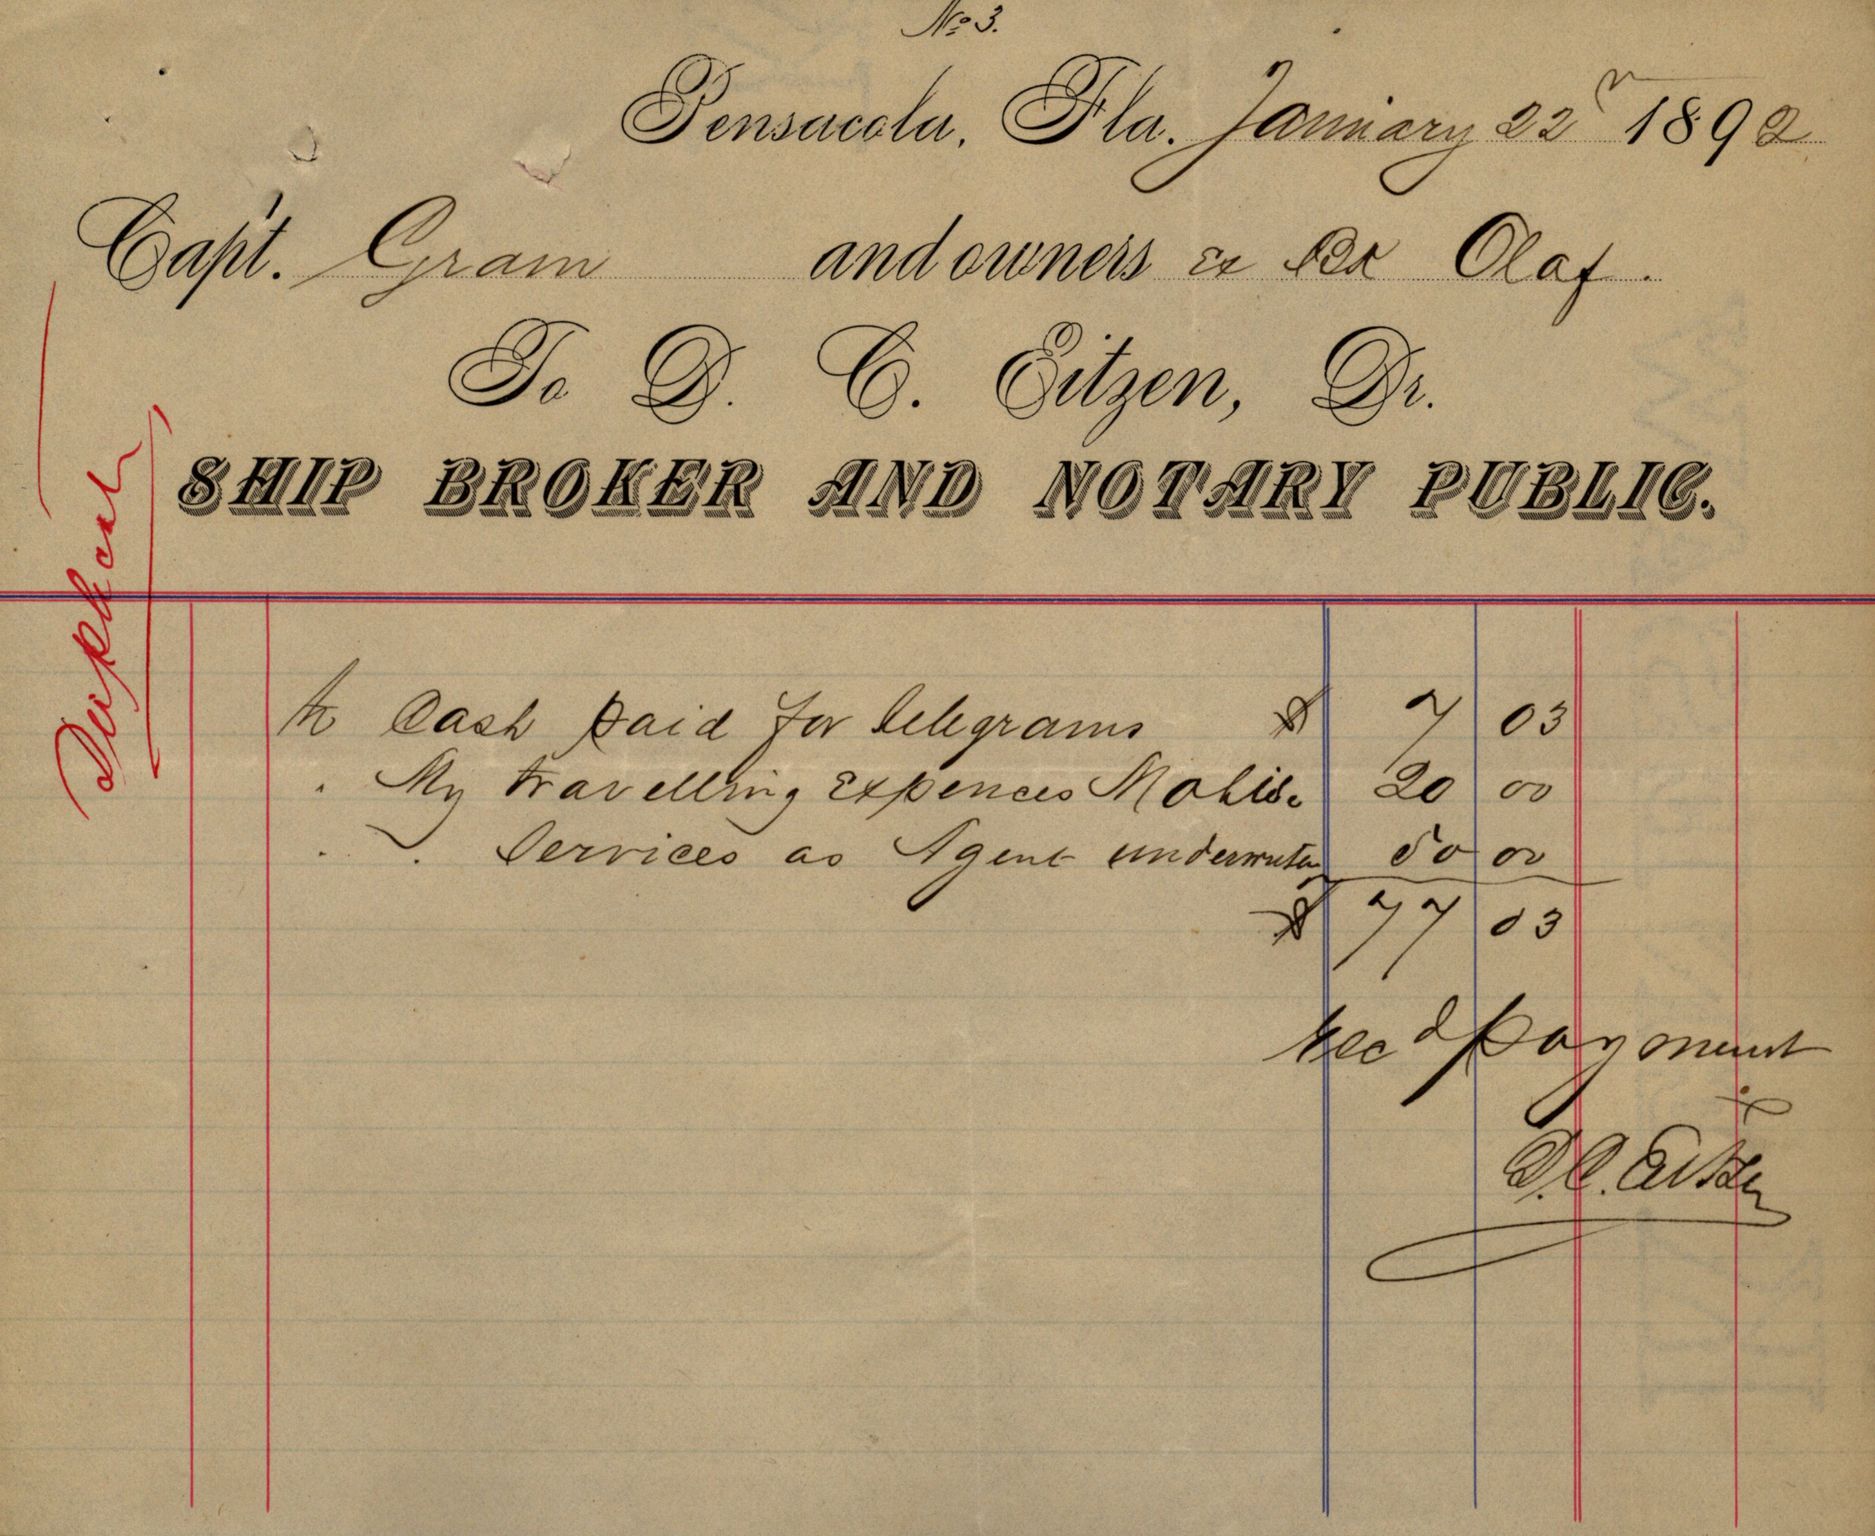 No 3.
Pensacola, Fla. January 22 1892
Capt. Gram and owners Olaf.
To D. C. Eitzen, Dr.
SHIP BROKER AND NOTARY PUBLIC.
Duplicat
To Cash paid for telegrams $ 7 03
" My travelling expences Mobile 20 00
" " Services as Agent underwriters 50 00
$ 77 03
Recd payment
D.C. Eitzen